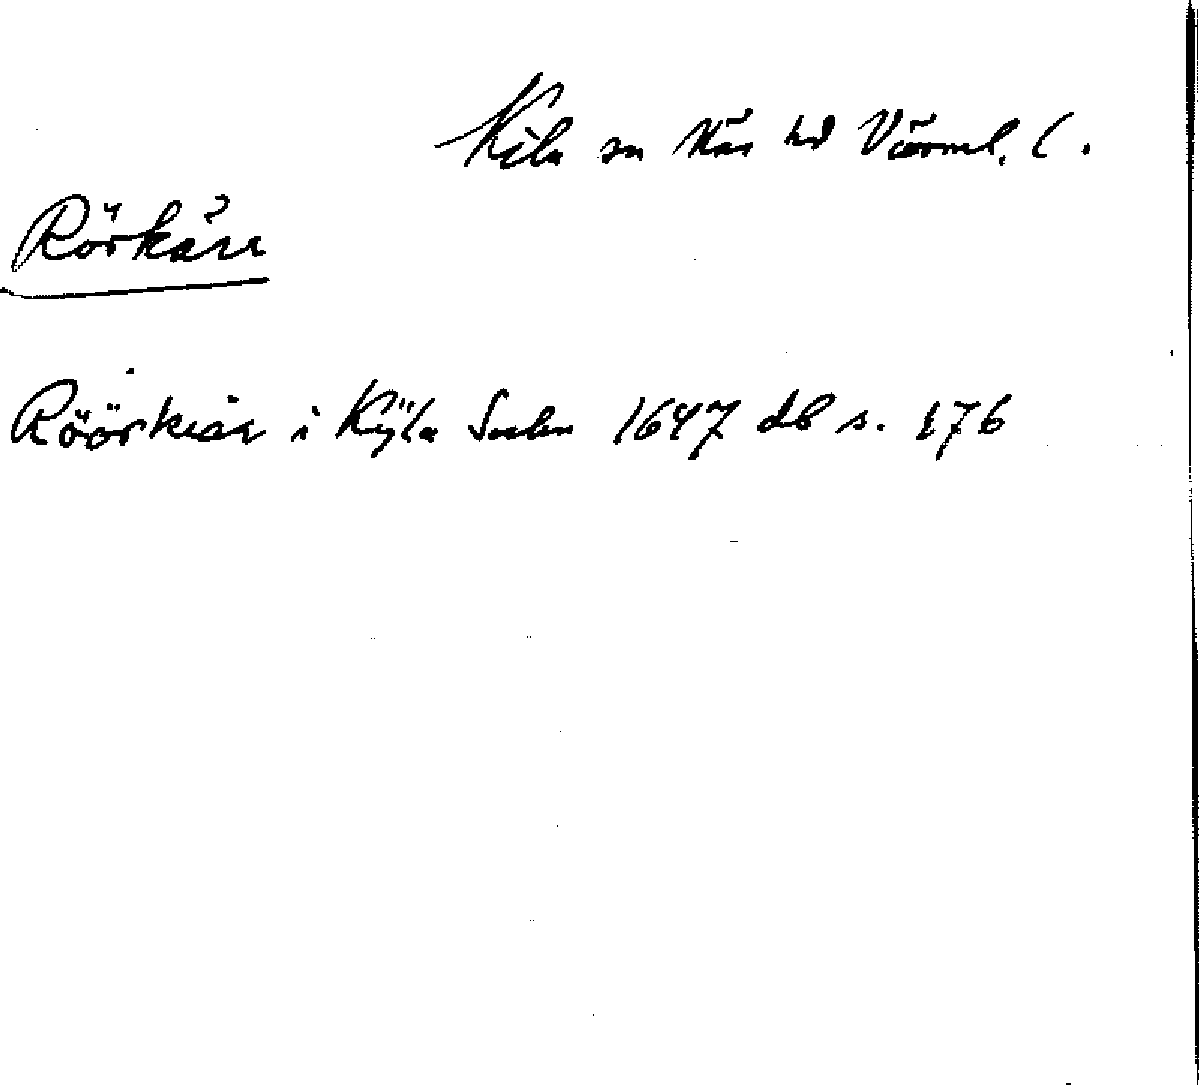 Kila sn Näs hd Värml. l.
Rörkärr
Röörkiär i Kÿla Sochn 1647 db s. 176